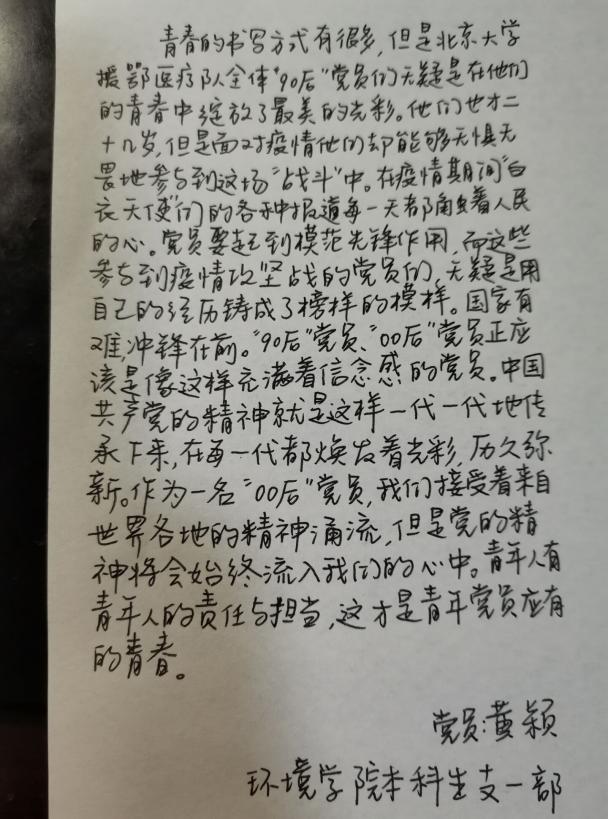 青春的书写方式有很多，但是北京大学
援鄂医疗队全体“90后”党员们无疑是在他们
的青春中绽放了最美的光彩。他们也才二
十几岁，但是面对疫情他们却能够无惧无
畏地参与到这场“战斗”中。在疫情期间“白
衣天使”们的各种报道每一天都触着人民
的心。党员要起到模范先锋作用，而这些
参与到疫情攻坚战的党员们，无疑是用
自己的经历铸成了榜样的模样。国家有
难，冲锋在前。“90后”党员、“00后”党员正应
该是像这样充满着信念感的党员。中国
共产党的精神就是这样一代一代地传
承下来，在每一代都焕发着光彩，历久弥
新。作为一名“00后”党员，我们接受着来自
世界各地的精神涌流，但是党的精
神将会始终流入我们的心中。青年人有
青年人的责任与担当，这才是青年党员应有
的青春。
党员：黄颖
环境学院本科生支一部